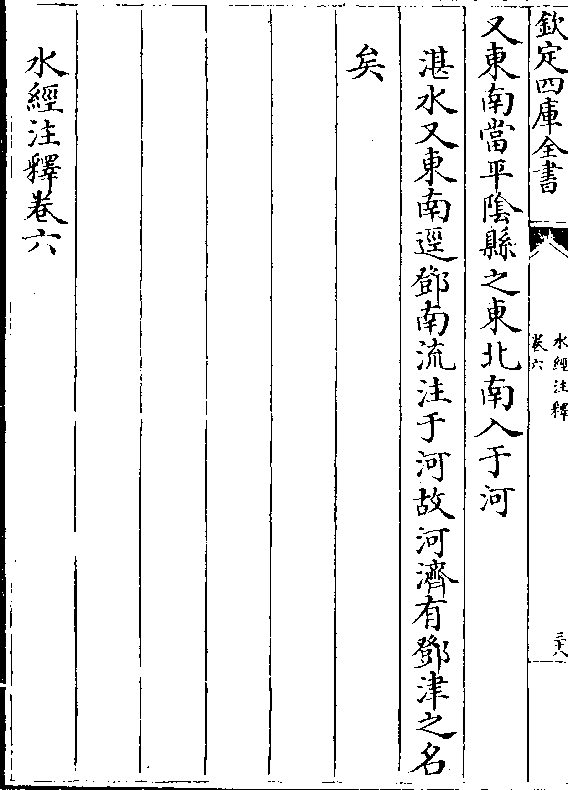 欽定四庫全書
水經注釋
卷六
三六
又東南當平隂縣之東北南入于河
湛水又東南逕鄧南流注于河故河濟有鄧津之名
矣
水經注釋卷六